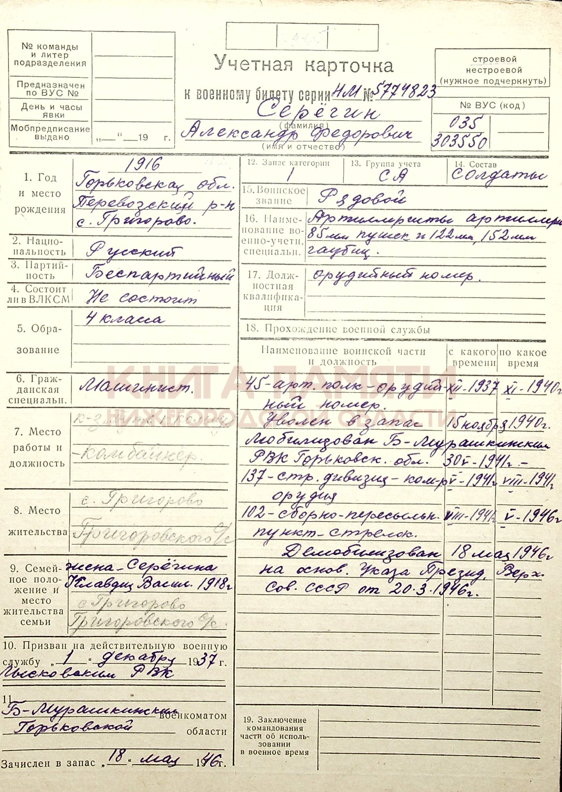 № команды
и литер
подразделения
Предназначен
по ВУС №
День и часы
явки
Мобпредписание
выдано „ — " — 19 г.
Учетная карточка
к военному билету серии НМ № 5774823
Серёгин
(фамилия)
Александр Федорович
(имя и отчество)
строевой
нестроевой
(нужное подчеркнуть)
№ ВУС (код)
035
303550
1. Год
и место
рождения
1916
Горьковская обл.
Перевозский р-н
с. Григорово.
2. Нацио-
нальность
Русский
3. Партий-
ность
Беспартийный
4. Состоит
ли в ВЛКСМ
Не состоит
5. Обра-
зование
4 класса
6. Граж-
данская
специальн.
Машинист.
7. Место
работы и
должность
комбайнер.
8. Место
жительства
с. Григорово
Григоровского с/с
9. Семей-
ное поло-
жение и
место
жительства
семьи
жена-Серёгина
Клавдия Васил. 1918г
с Григорово
Григоровского с/с.
10. Призван на действительную военную
службу „ 1 " декабря 1937 г.
Лысковским РВК
11.
Б-Мурашкинским военкоматом
Горьковской области
Зачислен в запас „ 18 " мая 1946 г.
12. Запас категории
1
13. Группа учета
СА
14. Состав
Солдаты
15. Воинское
звание
Рядовой
16. Наиме-
нование во-
енно-учетн.
специальн.
Артиллеристы артиллерии
85мм пушек и 122мм, 152мм
гаубиц.
17. Долж-
ностная
квалифика-
ция
орудийный номер.
18. Прохождение военной службы
Наименование воинской части
и должность
с какого
времени
по какое
время
45-арт. полк-орудий- XII-1937 XI-1940г
ный номер.
Уволен в запас 15 ноября 1940г.
Мобилизован Б-Мурашкинским
РВК Горьковск. обл. 30 V-1941г.-
137-стр. дивизия-комр V-1941г VIII-1941.
орудия
102-сборно-пересыльн. VIII-1941г V-1946г
пункт-стрелок.
Демобилизован 18 мая 1946г
на основ. Указа Презид. Верх.
Сов. СССР от 20.3.1946г.
19. Заключение
командования
части об исполь-
зовании
в военное время
КНИГА ПАМЯТИ
НИЖЕГОРОДСКОЙ ОБЛАСТИ